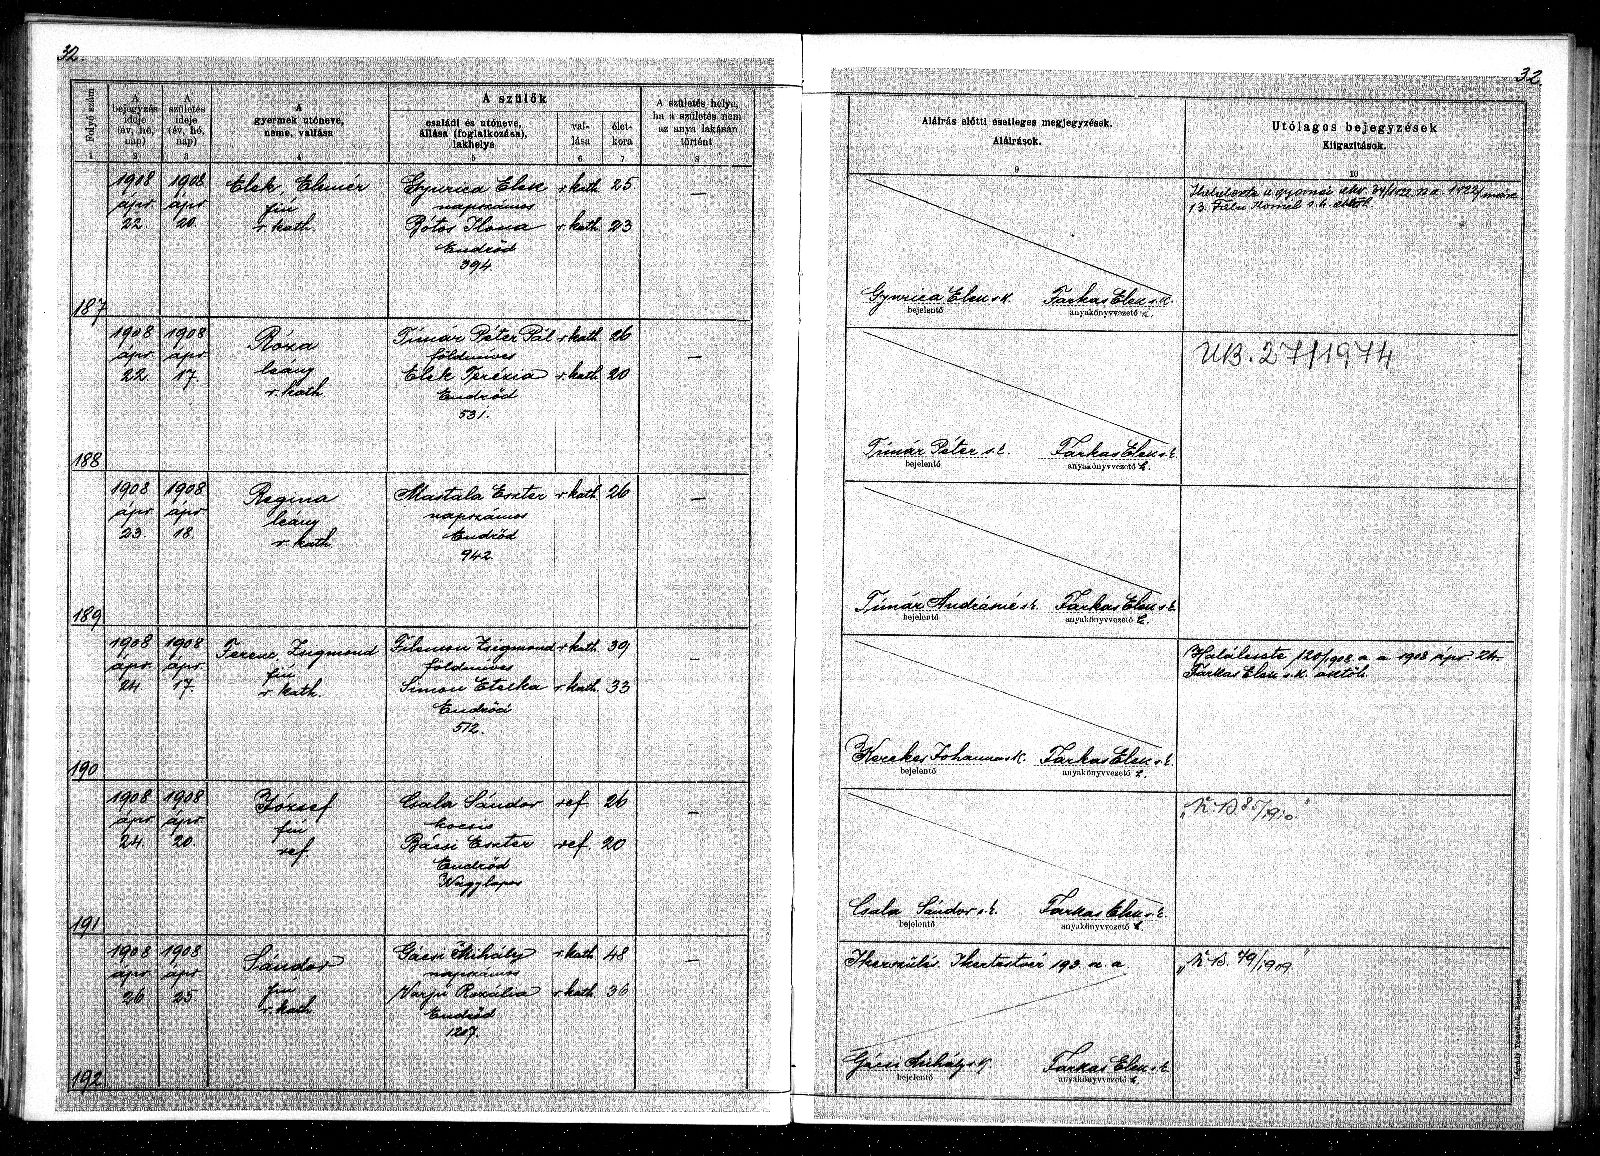 32.
32
Folyó szám
A bejegyzés ideje (év, hó, nap)
A születés ideje (év, hó, nap)
A gyermek utóneve, neme, vallása
A szülők
családi és utóneve, állása (foglalkozása), lakhelye
vallása
életkora
A születés helye, ha a születés nem az anya lakásán történt
Aláírás előtti esetleges megjegyzések.
Aláírások.
Utólagos bejegyzések
Kiigazítások.
1 2 3 4 5 6 7 8 9 10
187
1908 ápr 22
1908 ápr 20.
Elek, Elemér
fiú
r. kath.
Gyurica Elek r. kath 25
napszámos
Botos Ilona r. kath 23
Endrőd
394.
—
Gyurica Elek s.k. Farkas Elek s.k.
bejelentő anyakönyvvezető
188
1908 ápr 22
1908 ápr 17.
Róza
leány
r. kath
Tímár Péter Pál r. kath 26
földmíves
Elek Terézia r. kath 20
Endrőd
531.
—
Tímár Péter s.k. Farkas Elek s.k.
bejelentő anyakönyvvezető
UB. 27/1974
189
1908 ápr 23.
1908 ápr 18.
Regina
leány
r. kath
Mastala Eszter r. kath 26
napszámos
Endrőd
942.
—
Tímár Andrásné s.k. Farkas Elek s.k.
bejelentő anyakönyvvezető
190
1908 ápr. 24
1908 ápr. 17.
Ferenc Zsigmond
fiú
r. kath.
Filemon Zsigmond r. kath. 39
földmíves
Simon Etelka r. kath. 33
Endrőd
512.
—
Kerekes Johanna s.k. Farkas Elek s.k.
bejelentő anyakönyvvezető
Halálesete 120/1908 a. a. 1908 ápr. 24.
Farkas Elek s.k. aktöl.
191
1908 ápr. 24.
1908 ápr. 20.
József
fiú
ref.
Csala Sándor ref. 26
kocsis
Bácsi Eszter ref. 20
Endrőd
Nagylapos
—
Csala Sándor s.k. Farkas Elek s.k.
bejelentő anyakönyvvezető
192
1908 ápr 26
1908 ápr 25
Sándor
fiú
r. kath
Gácsi Mihály r. kath 48
napszámos
Varju Rozália r. kath 36
Endrőd
1207.
—
Ikerszülés. Ikertestvér 193. a. a.
Gácsi Mihály s.k. Farkas Elek s.k.
bejelentő anyakönyvvezető
„K. B. 49/1909."